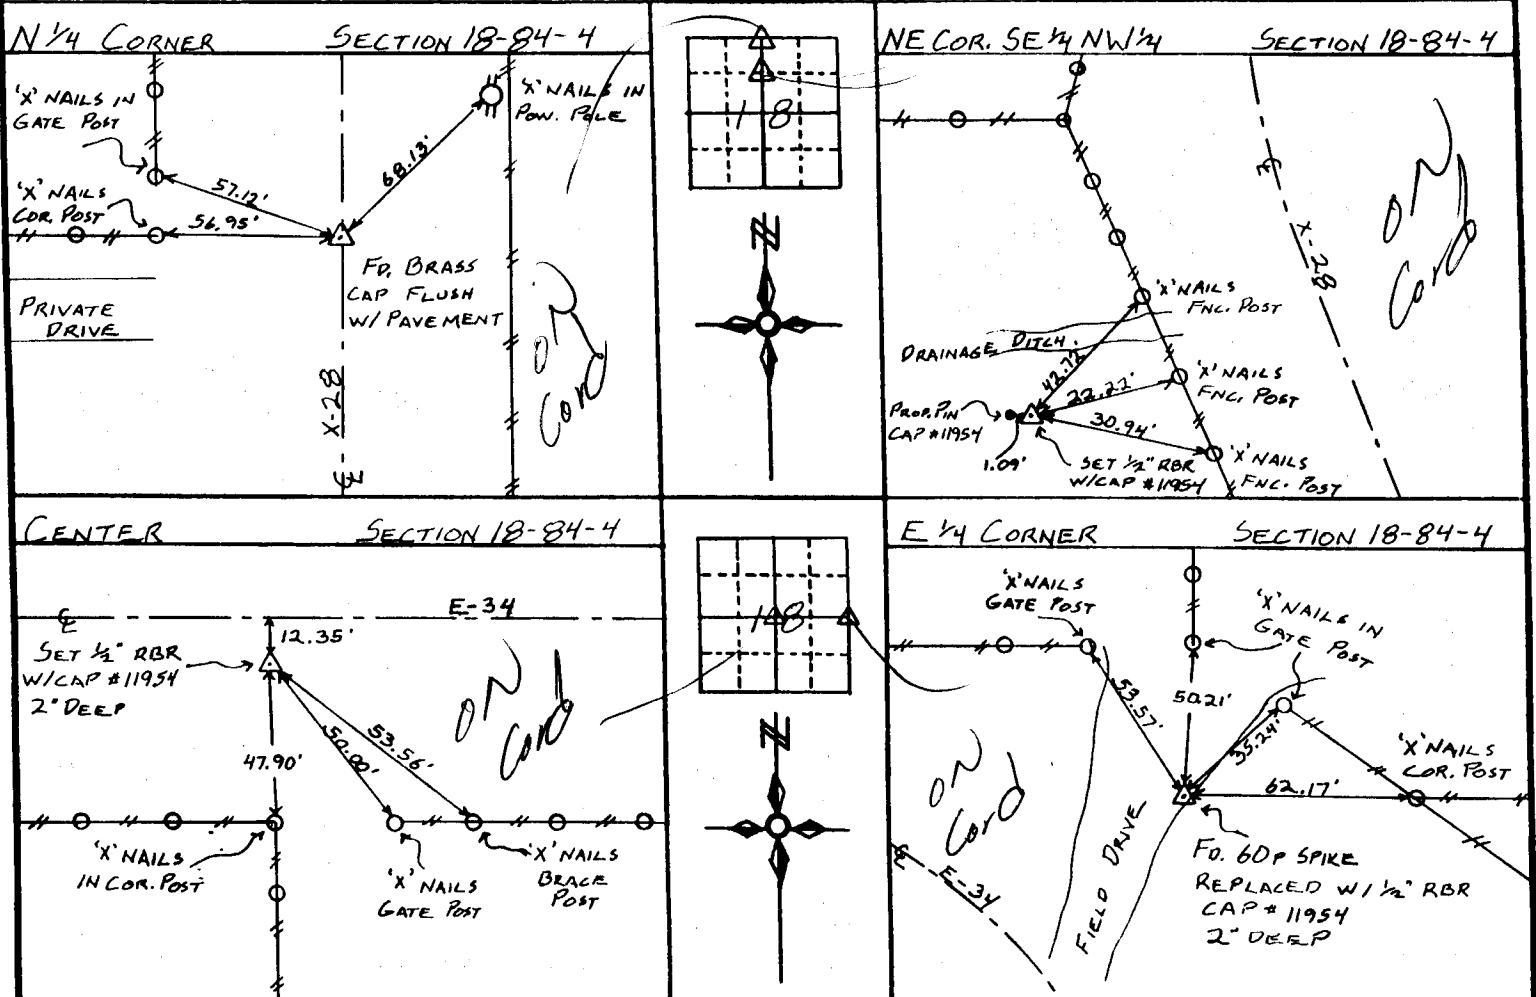 N 1/4 CORNER SECTION 18-84-4
'X' NAILS IN
GATE POST
'X' NAILS
COR. POST
57.12'
56.95'
68.13'
'X' NAILS IN
POW. POLE
FD. BRASS
CAP FLUSH
W/ PAVEMENT
PRIVATE
DRIVE
X-28
℄
ON
Card
18
N
NE COR. SE 1/4 NW 1/4 SECTION 18-84-4
℄
X-28
ON
Card
'X' NAILS
FNC. POST
DRAINAGE DITCH
42.72'
22.22'
30.94'
'X' NAILS
FNC. POST
PROP. PIN
CAP #11954
1.09'
SET 1/2" RBR
W/CAP #11954
'X' NAILS
FNC. POST
CENTER SECTION 18-84-4
℄
E-34
12.35'
SET 1/2" RBR
W/CAP #11954
2" DEEP
47.90'
50.90'
53.56'
ON
Card
'X' NAILS
IN COR. POST
'X' NAILS
GATE POST
'X' NAILS
BRACE
POST
18
N
E 1/4 CORNER SECTION 18-84-4
'X' NAILS
GATE POST
'X' NAILS IN
GATE POST
53.57'
50.21'
35.24'
62.17'
'X' NAILS
COR. POST
ON
Card
℄
E-34
FIELD DRIVE
FD. 60P SPIKE
REPLACED W/ 1/2" RBR
CAP # 11954
2" DEEP